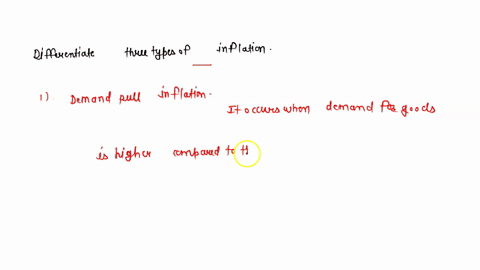 Differentiate three types of inflation.
1) Demand pull inflation.
It occurs when demand for goods
is higher compared to th